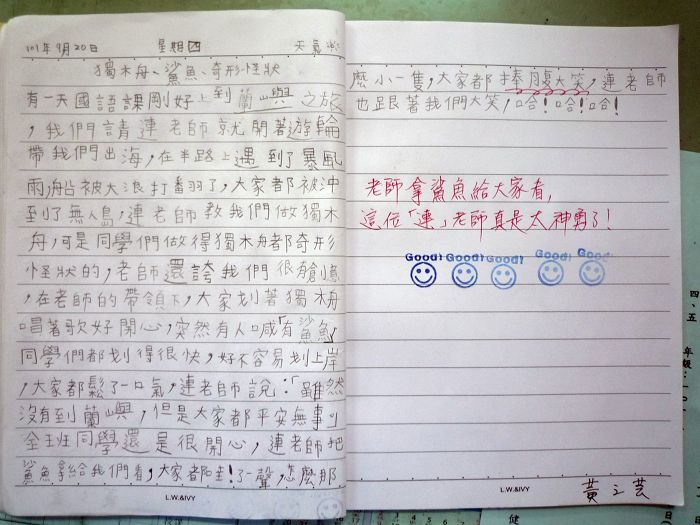 101年9月20日 星期四 天氣
獨木舟、鯊魚、奇形怪狀
有一天國語課剛好上到蘭嶼之旅
，我們請連老師就開著遊輪
帶我們出海，在半路上遇到了暴風
雨船被大浪打翻了，大家都被沖
到了無人島，連老師教我們做獨木
舟，可是同學們做得獨木舟都奇形
怪狀的，老師還誇我們很有創意
，在老師的帶領下，大家划著獨木舟
唱著歌好開心，突然有人喊「有鯊魚」
同學們都划得很快，好不容易划上岸
，大家都鬆了一口氣，連老師說：「雖然
沒有到蘭嶼，但是大家都平安無事」
全班同學還是很開心，連老師把
鯊魚拿給我們看，大家都哇！了一聲，怎麼那
L.W.&IVY
麼小一隻，大家都捧腹大笑，連老師
也跟著我們大笑，哈！哈！哈！
老師拿鯊魚給大家看，
這位「連」老師真是太神勇了！
Good! Good! Good! Good! Good!
L.W.&IVY
四、五年級